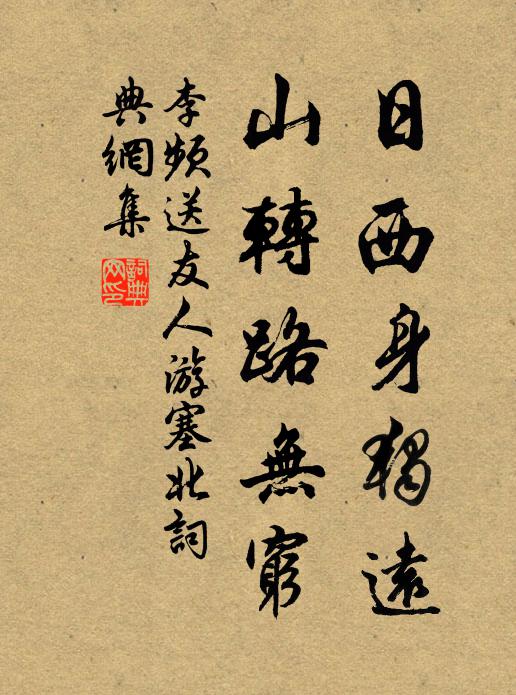 日西身獨遠
山轉路無窮
李頻送友人游塞北詞
典網集
詞典网印